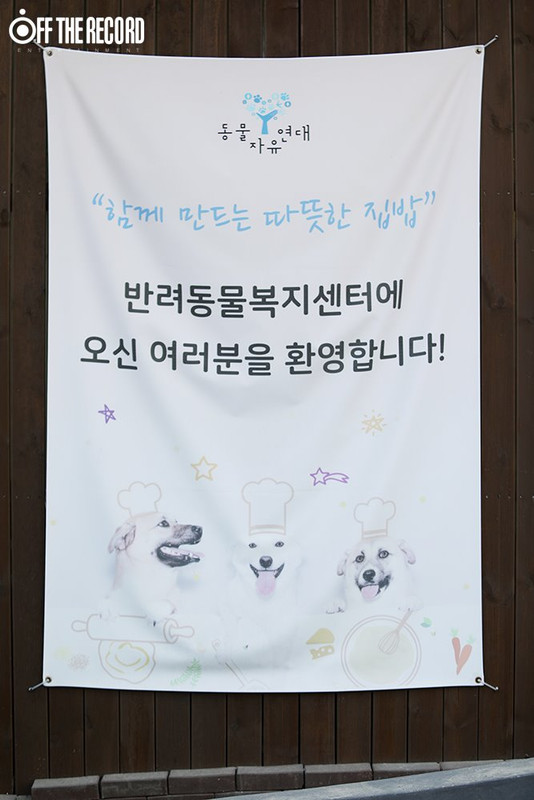 OFF THE RECORD
ENTERTAINMENT
동물
자유
연대
“함께 만드는 따뜻한 집밥”
반려동물복지센터에
오신 여러분을 환영합니다!